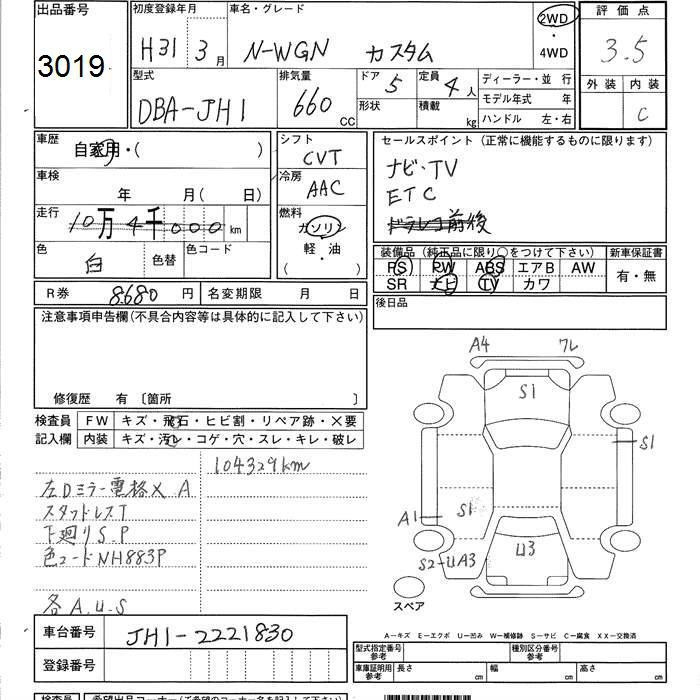 出品番号
3019
初度登録年月
H31 3月
車名・グレード
N-WGN カスタム
2WD
・
4WD
評価点
3.5
外装 内装
C
型式
DBA-JH1
排気量
660 CC
ドア 5
形状
定員 4人
積載 kg
ディーラー・並行
モデル年式 年
ハンドル 左・右
車歴
自家用・( )
車検
年 月( 日)
走行
10万4千000km
色
白
色替
色コード
シフト
CVT
冷房
AAC
燃料
ガソリン
軽・油
( )
セールスポイント(正常に機能するものに限ります)
ナビ・TV
ETC
ドラレコ前後
装備品(純正品に限り○をつけて下さい)
PS PW ABS エアB AW
SR ナビ TV カワ
新車保証書
有・無
R券 8680円
名変期限 月 日
後日品
注意事項申告欄(不具合内容等は具体的に記入して下さい)
修復歴 有 〔箇所 〕
検査員
記入欄
FW キズ・飛石・ヒビ割・リペア跡・×要
内装 キズ・汚レ・コゲ・穴・スレ・キレ・破レ
104329km
左Dミラー電格× A
スタッドレスT
下廻りS.P
色コードNH883P
各A.U.S
A4
ワレ
S1
S1
S1
A1
U3
S2-UA3
スペア
A-キズ E-エクボ U-凹み W-補修跡 S-サビ C-腐食 XX-交換済
車台番号
JH1-2221830
登録番号
型式指定番号
参考
種別区分番号
参考
車庫証明用
参考
長さ
幅
高さ
cm
cm
cm
検査員
希望出品コーナー(ご希望のコーナー名を記入下さい)